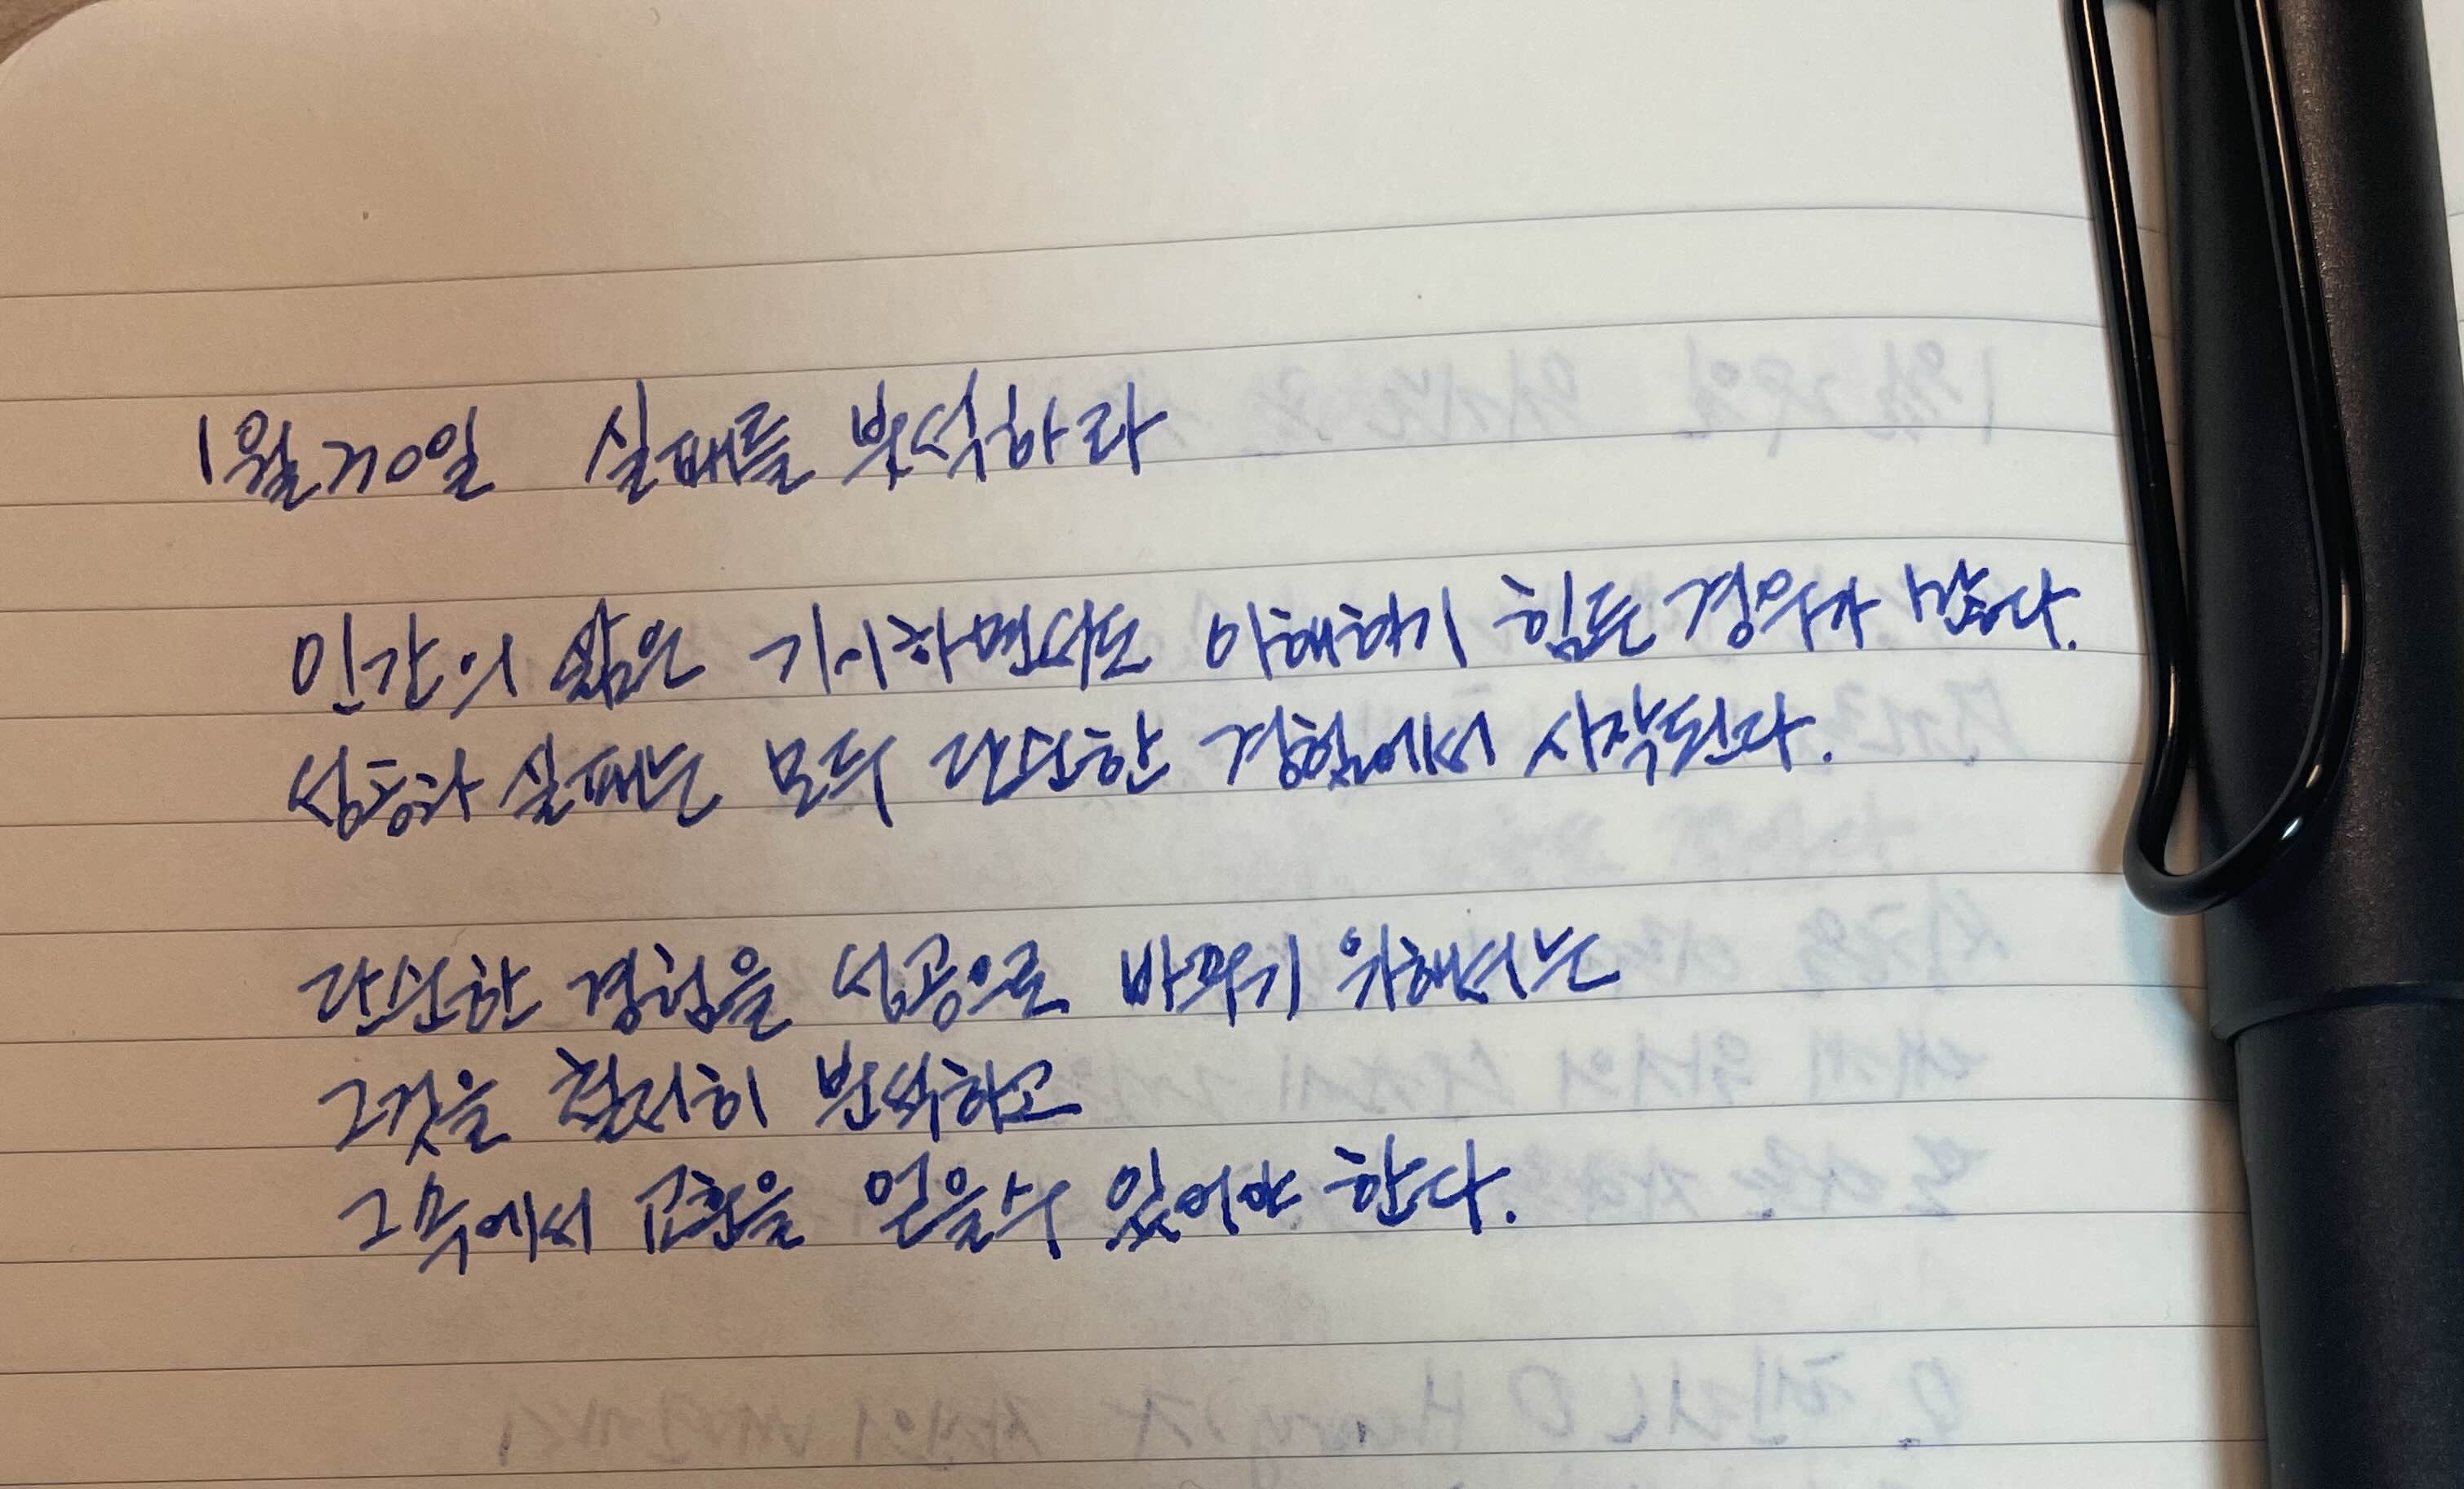 1월 30일 실패를 분석하라
인간의 삶은 기이하면서도 이해하기 힘든 경우가 많다.
성공과 실패는 모두 단순한 경험에서 시작된다.
단순한 경험을 성공으로 바꾸기 위해서는
그것을 철저히 분석하고
그 속에서 교훈을 얻을 수 있어야 한다.